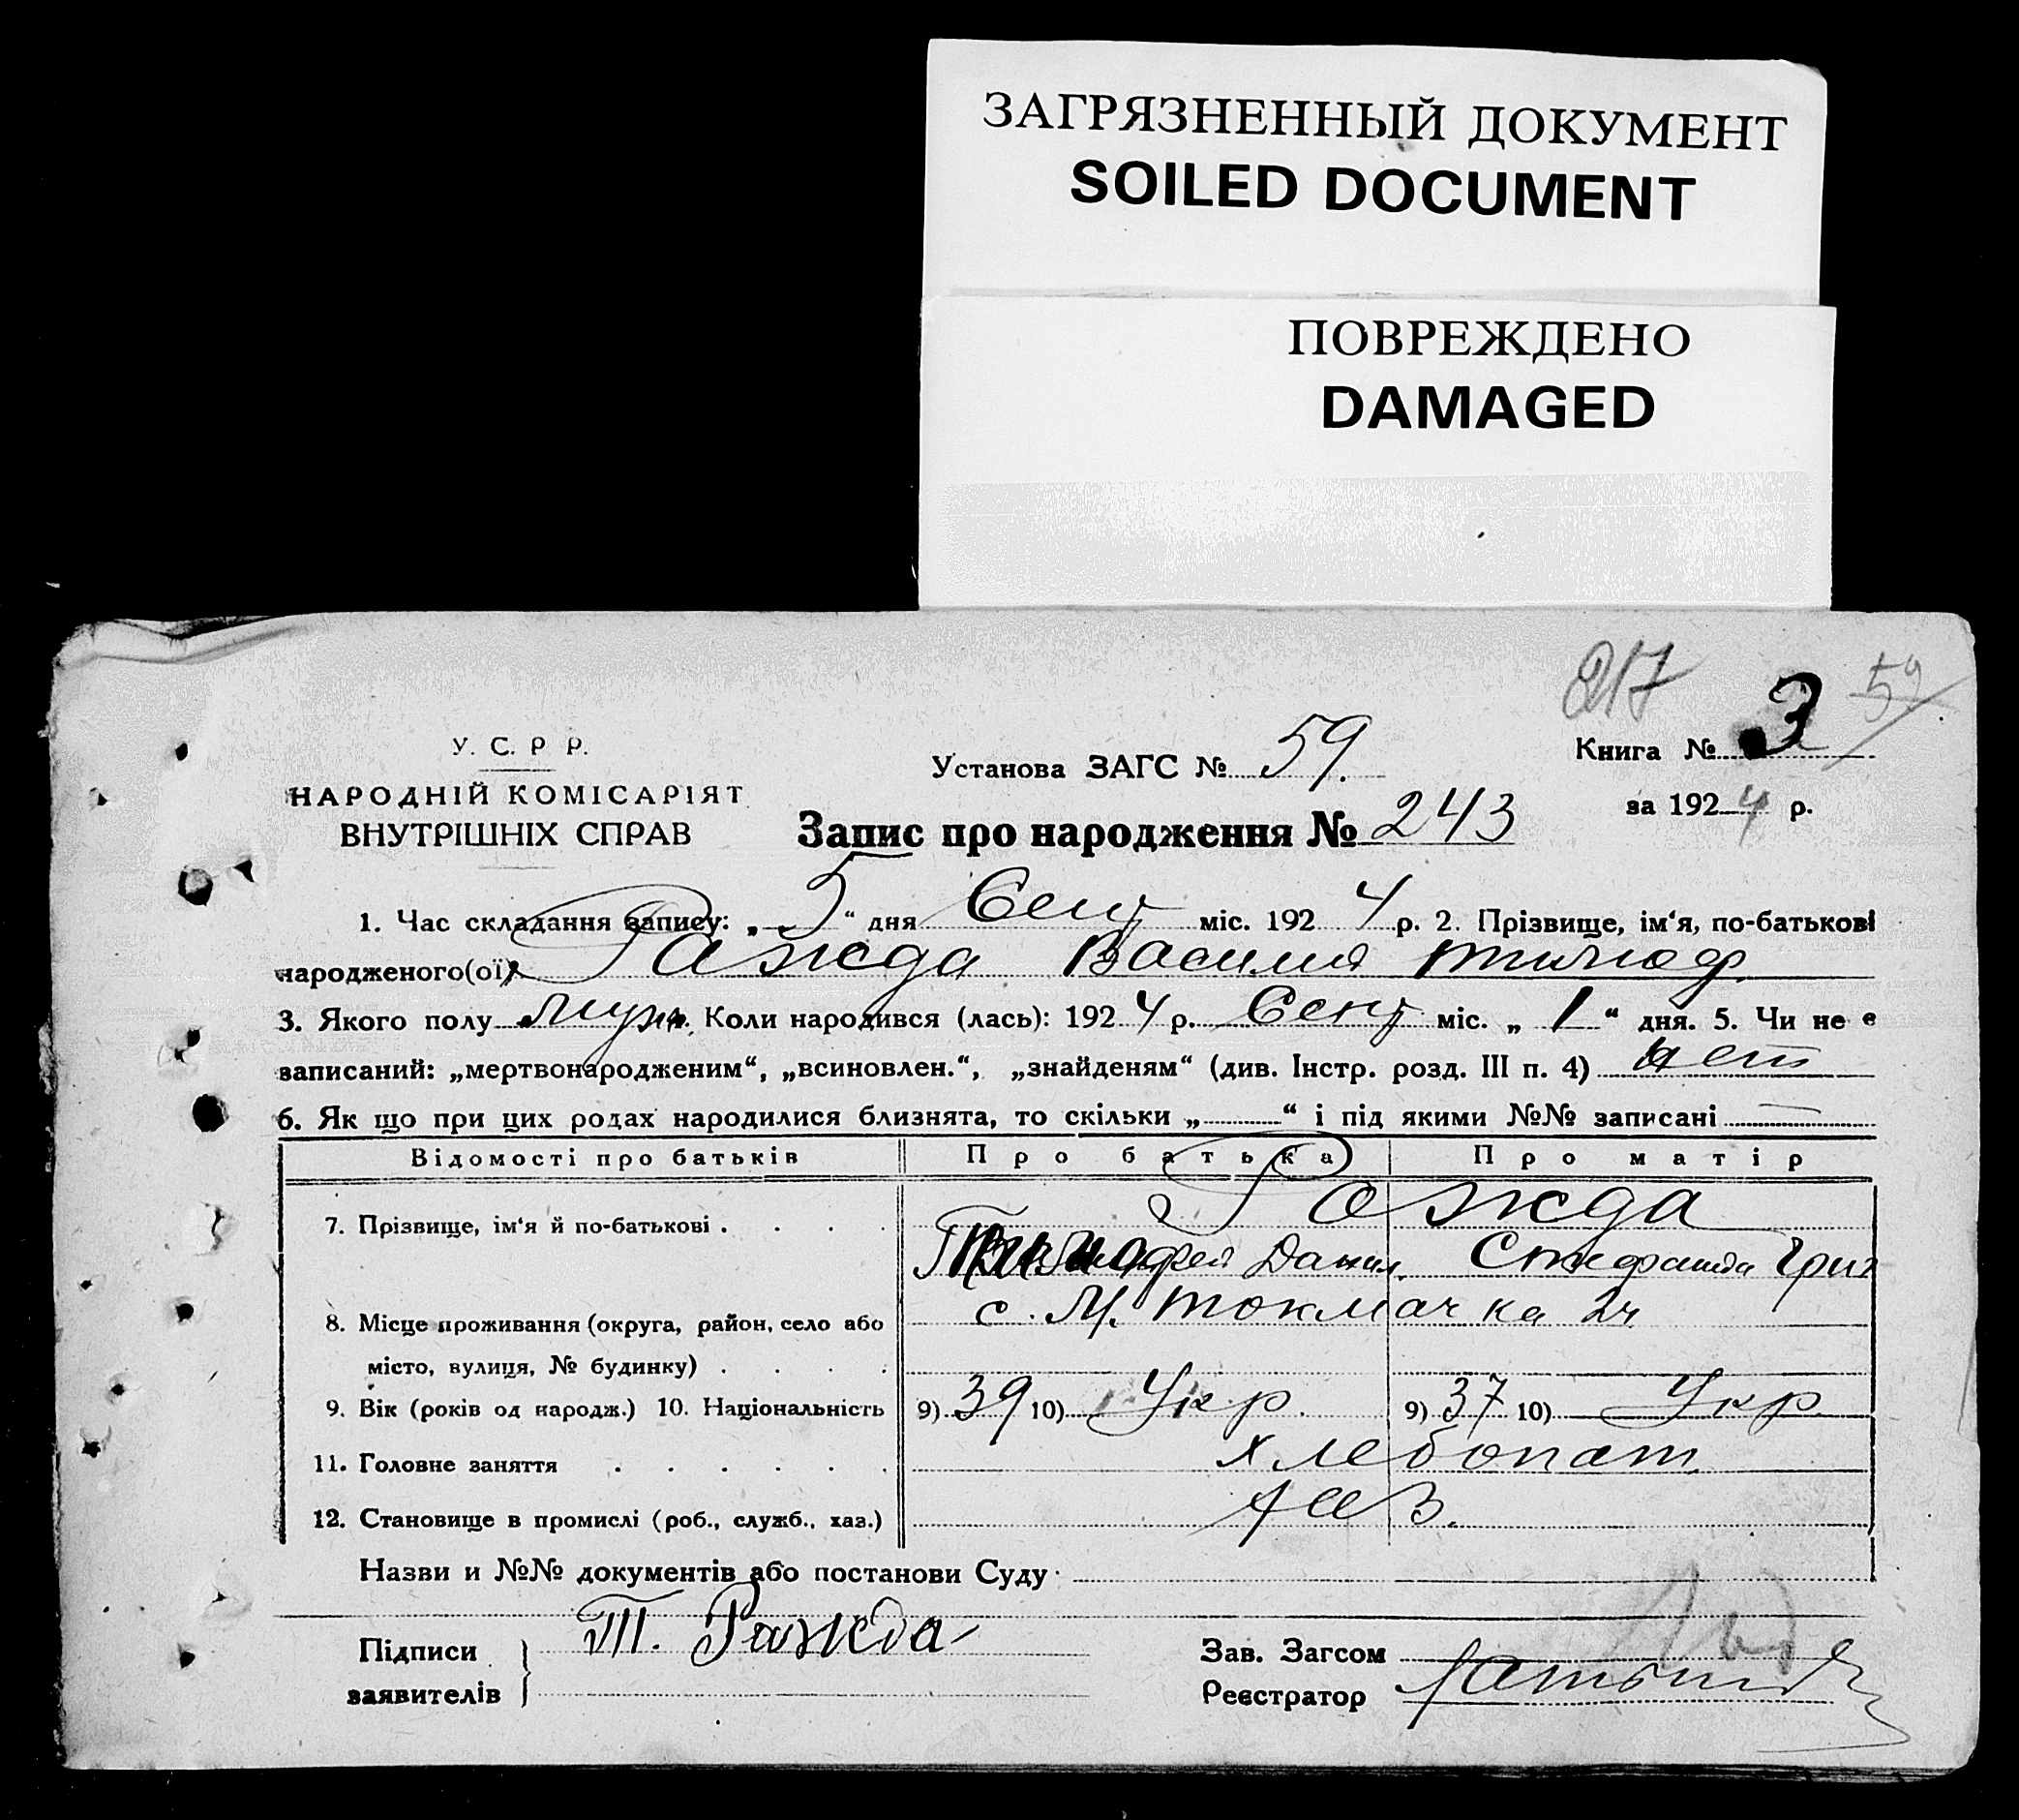 ЗАГРЯЗНЕННЫЙ ДОКУМЕНТ
SOILED DOCUMENT
ПОВРЕЖДЕНО
DAMAGED
217 59
У. С. Р Р.
НАРОДНІЙ КОМІСАРІЯТ
ВНУТРІШНІХ СПРАВ
Установа ЗАГС № 59.
Книга № 3
за 1924 р.
Запис про народження № 243
1. Час складання запису: „ 5 “ дня Сент міс. 1924 р. 2. Прізвище, ім‘я, по-батькові
народженого(ої) Ражда Василия Тимоф
3. Якого полу муж. Коли народився (лась): 1924 р. Сент міс. „ 1 “ дня. 5. Чи не є
записаний: „мертвонародженим“, „всиновлен.“, „знайденям“ (див. Інстр. розд. III п. 4) нет
6. Як що при цих родах народилися близнята, то скільки „ “ і під якими №№ записані —
Відомості про батьків Про батька Про матір
7. Прізвище, ім‘я й по-батькові . . . . Рожда
Данил. Стефанида Григ
8. Місце проживання (округа, район, село або с. М. Токмачка 2ч
місто, вулиця, № будинку) . . . .
9. Вік (років од народж.) 10. Національність 9) 39 10) Укр. 9) 37 10) Укр.
11. Головне заняття . . . . . . хлебопаш.
12. Становище в промислі (роб., служб., хаз.) хаз.
Назви и №№ документів або постанови Суду
Підписи Т. Ражда
заявителів
Зав. Загсом
Реєстратор